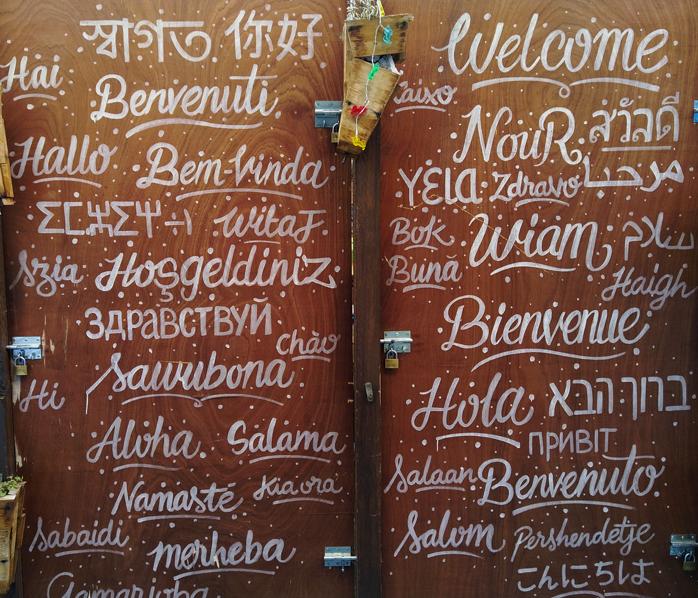 স্বাগত 你好
Hai
Benvenuti
Hallo Bem-vinda
ⵉⵎⵣⵉⵖ Witaj
Szia Hoşgeldiniz
ЗДРАВСТВУЙ
chào
Sawubona
Hi
Aloha Salama
Namasté Kia ora
Sabaidi
merheba
Welcome
Kaixo
NouR สวัสดี
γεια Zdravo مرحبا
Bok Wiam سلام
Bună
Haigh
Bienvenue
Hola ברוך הבא
ПРИВІТ
Salaan Benvenuto
Salom Pershendetje
こんにちは